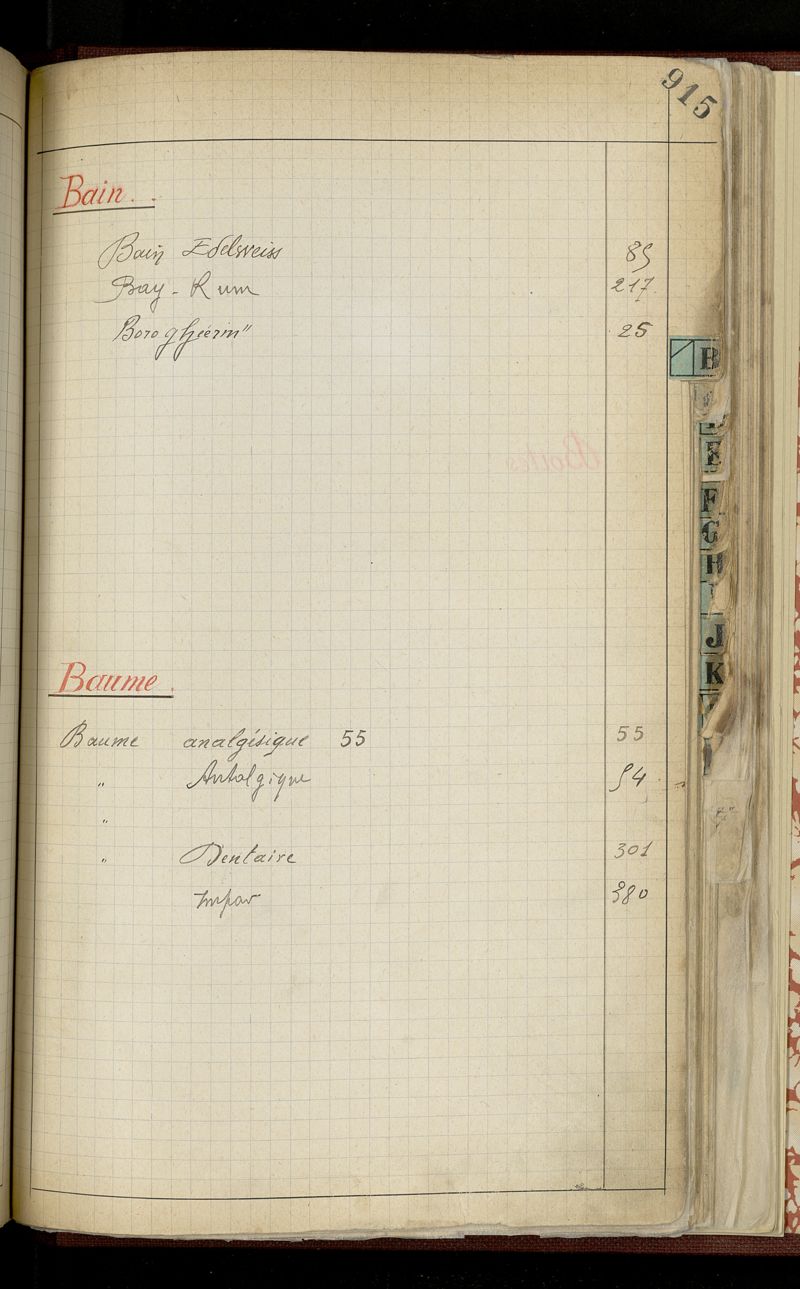 915
Bain.
Bain Edelweiss 85
Bay-Rum 217.
Boroglycérin" 25
B
E
F
G
H
J
K
Baume.
Baume analgésique 55 55
" Antalgique 54
"
" Dentaire 301
380